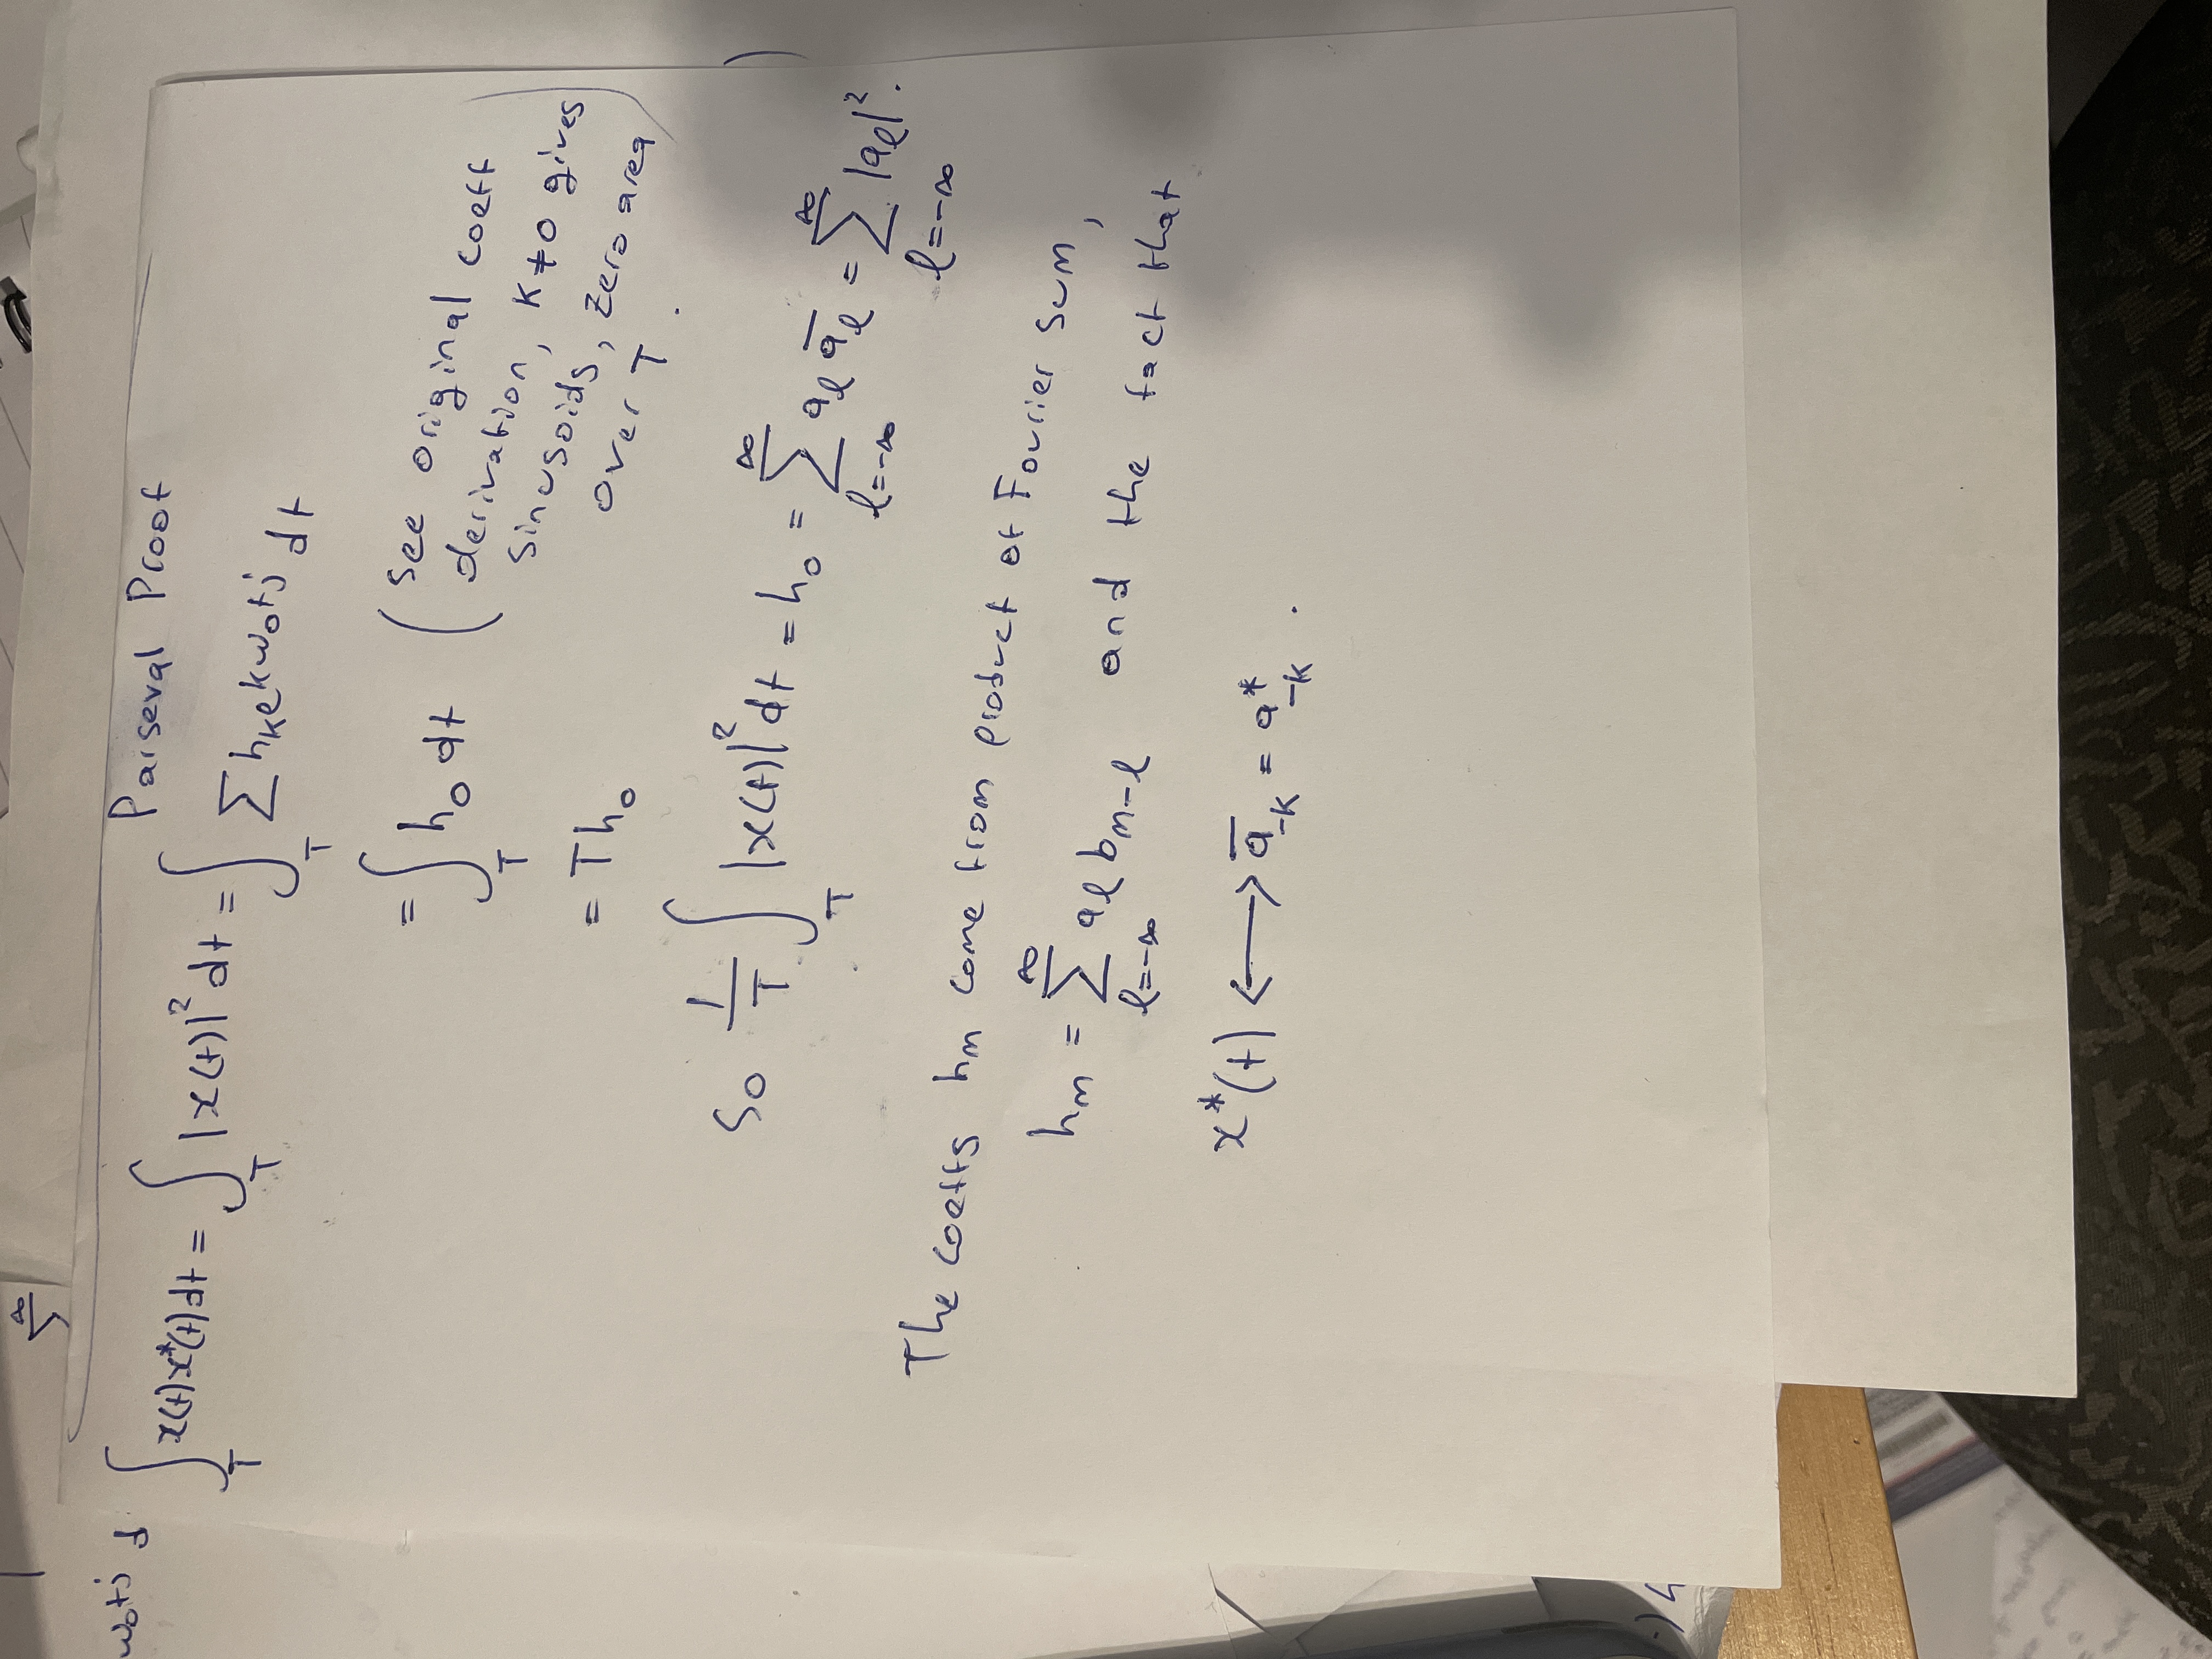 ∞
Σ
w₀tj d
Parseval Proof
∫_T x(t)x*(t)dt = ∫_T |x(t)|² dt = ∫_T Σ hₖe^{kw₀tj} dt
= ∫_T h₀ dt (see original coeff
derivation, K≠0 gives
sinusoids, zero area
over T.)
= Th₀
So 1/T ∫_T |x(t)|² dt = h₀ = Σ_{l=-∞}^{∞} a_l a̅_l = Σ_{l=-∞}^{∞} |a_l|².
The coeffs hₘ come from product of Fourier sum,
hₘ = Σ_{l=-∞}^{∞} a_l b_{m-l} and the fact that
x*(t) ⟷ a̅_{-K} = a*_{-K}.